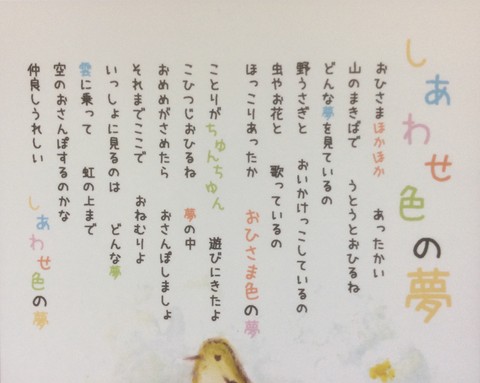 しあわせ色の夢
おひさまほかほか　あったかい
山のまきばで　うとうとおひるね
どんな夢を見ているの
野うさぎと　おいかけっこしているの
虫やお花と　歌っているの
ほっこりあったか　おひさま色の夢
ことりがちゅんちゅん　遊びにきたよ
こひつじおひるね　夢の中
おめめがさめたら　おさんぽしましょ
それまでここで　おねむりよ
いっしょに見るのは　どんな夢
雲に乗って　虹の上まで
空のおさんぽするのかな
仲良しうれしい　しあわせ色の夢